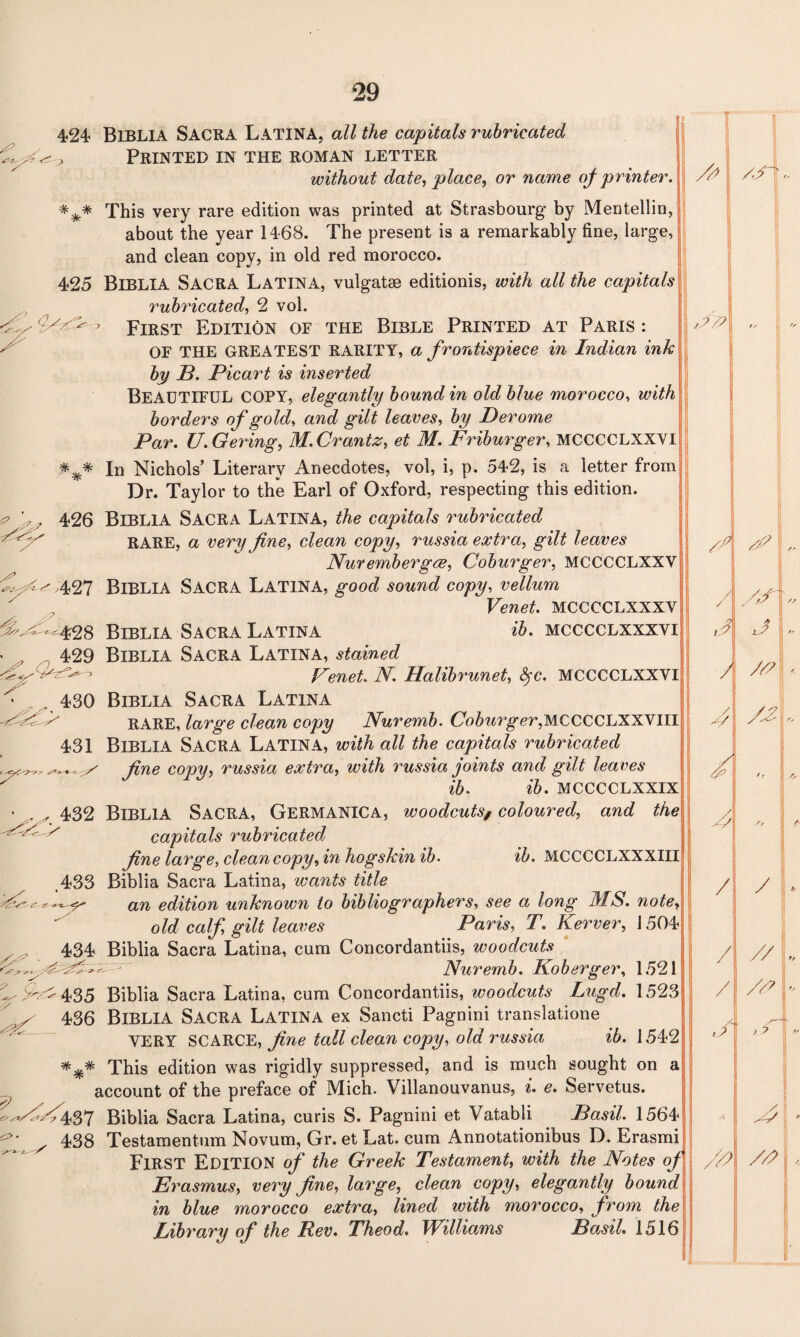 29
424 BIBLIA SACRA LATINA, all the capitals rubricated
PRINTED IN THE ROMAN LETTER
without date, place, or name of printer.
*** This very rare edition was printed at Strasbourg by Mentellin,
about the year 1468. The present is a remarkably fine, large,
and clean copy, in old red morocco.
425 BIBLIA SACRA LATINA, vulgatæ editionis, with all the capitals
rubricated, 2 vol.
FIRST EDITION OF THE BIBLE PRINTED AT PARIS:
OF THE GREATEST RARITY, a frontispiece in Indian ink
by B. Picart is inserted
BEAUTIFUL COPY, elegantly bound in old blue morocco, with
borders of gold, and gilt leaves, by Derome
Par. U. Gering, M. Crantz, et M. Friburger, MCCCCLXXVI
*** In Nichols' Literary Anecdotes, vol, i, p. 542, is a letter from
Dr. Taylor to the Earl of Oxford, respecting this edition.
426 BIBLIA SACRA LATINA, the capitals rubricated
RARE, a very fine, clean copy, russia extra, gilt leaves
Nurembergæ, Coburger, MCCCCLXXV
427 BIBLIA SACRA LATINA, good sound copy, vellum
Venet. MCCCCLXXXV
428 BIBLIA SACRA LATINA ib. MCCCCLXXXVI
429 BIBLIA SACRA LATINA, stained
Venet. N. Halibrunet, &c. MCCCCLXXVI
430 BIBLIA SACRA LATINA
RARE, large clean copy Nuremb. Coburger, MCCCCLXXVIII
431 BIBLIA SACRA LATINA, with all the capitals rubricated
fine copy, russia extra, with russia joints and gilt leaves
ib. ib. MCCCCLXXIX
432 BIBLIA SACRA, GERMANICA, woodcuts, coloured, and the
capitals rubricated
fine large, clean copy, in hogskin ib. ib. MCCCCLXXXIII
433 Biblia Sacra Latina, wants title
an edition unknown to bibliographers, see a long MS. note,
old calf, gilt leaves Paris, T. Kerver, 1504
434 Biblia Sacra Latina, cum Concordantiis, woodcuts
Nuremb. Koberger, 1521
435 Biblia Sacra Latina, cum Concordantiis, woodcuts Lugd. 1523
436 BIBLIA SACRA LATINA ex Sancti Pagnini translatione
VERY SCARCE, fine tall clean copy, old russia ib. 1542
*** This edition was rigidly suppressed, and is much sought on a
account of the preface of Mich. Villanouvanus, i. e. Servetus.
437 Biblia Sacra Latina, curis S. Pagnini et Vatabli Basil. 1564
438 Testamentum Novum, Gr. et Lat. cum Annotationibus D. Erasmi
FIRST EDITION of the Greek Testament, with the Notes of
Erasmus, very fine, large, clean copy, elegantly bound
in blue morocco extra, lined with morocco, from the
Library of the Rev. Theod. Williams Basil. 1516